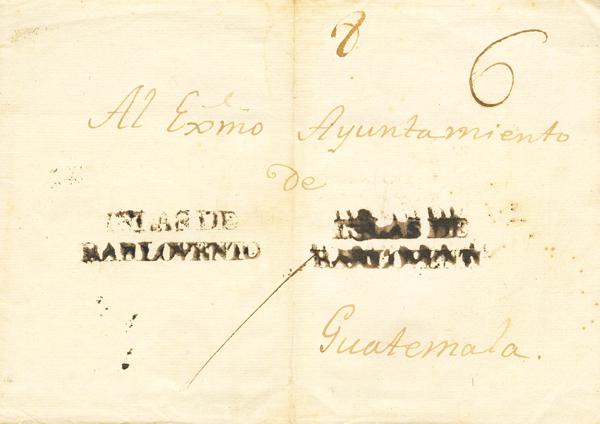 8 6
Al Exmo Ayuntamiento
de
ISLAS DE ISLAS DE
BARLOVENTO BARLOVENTO
Guatemala.